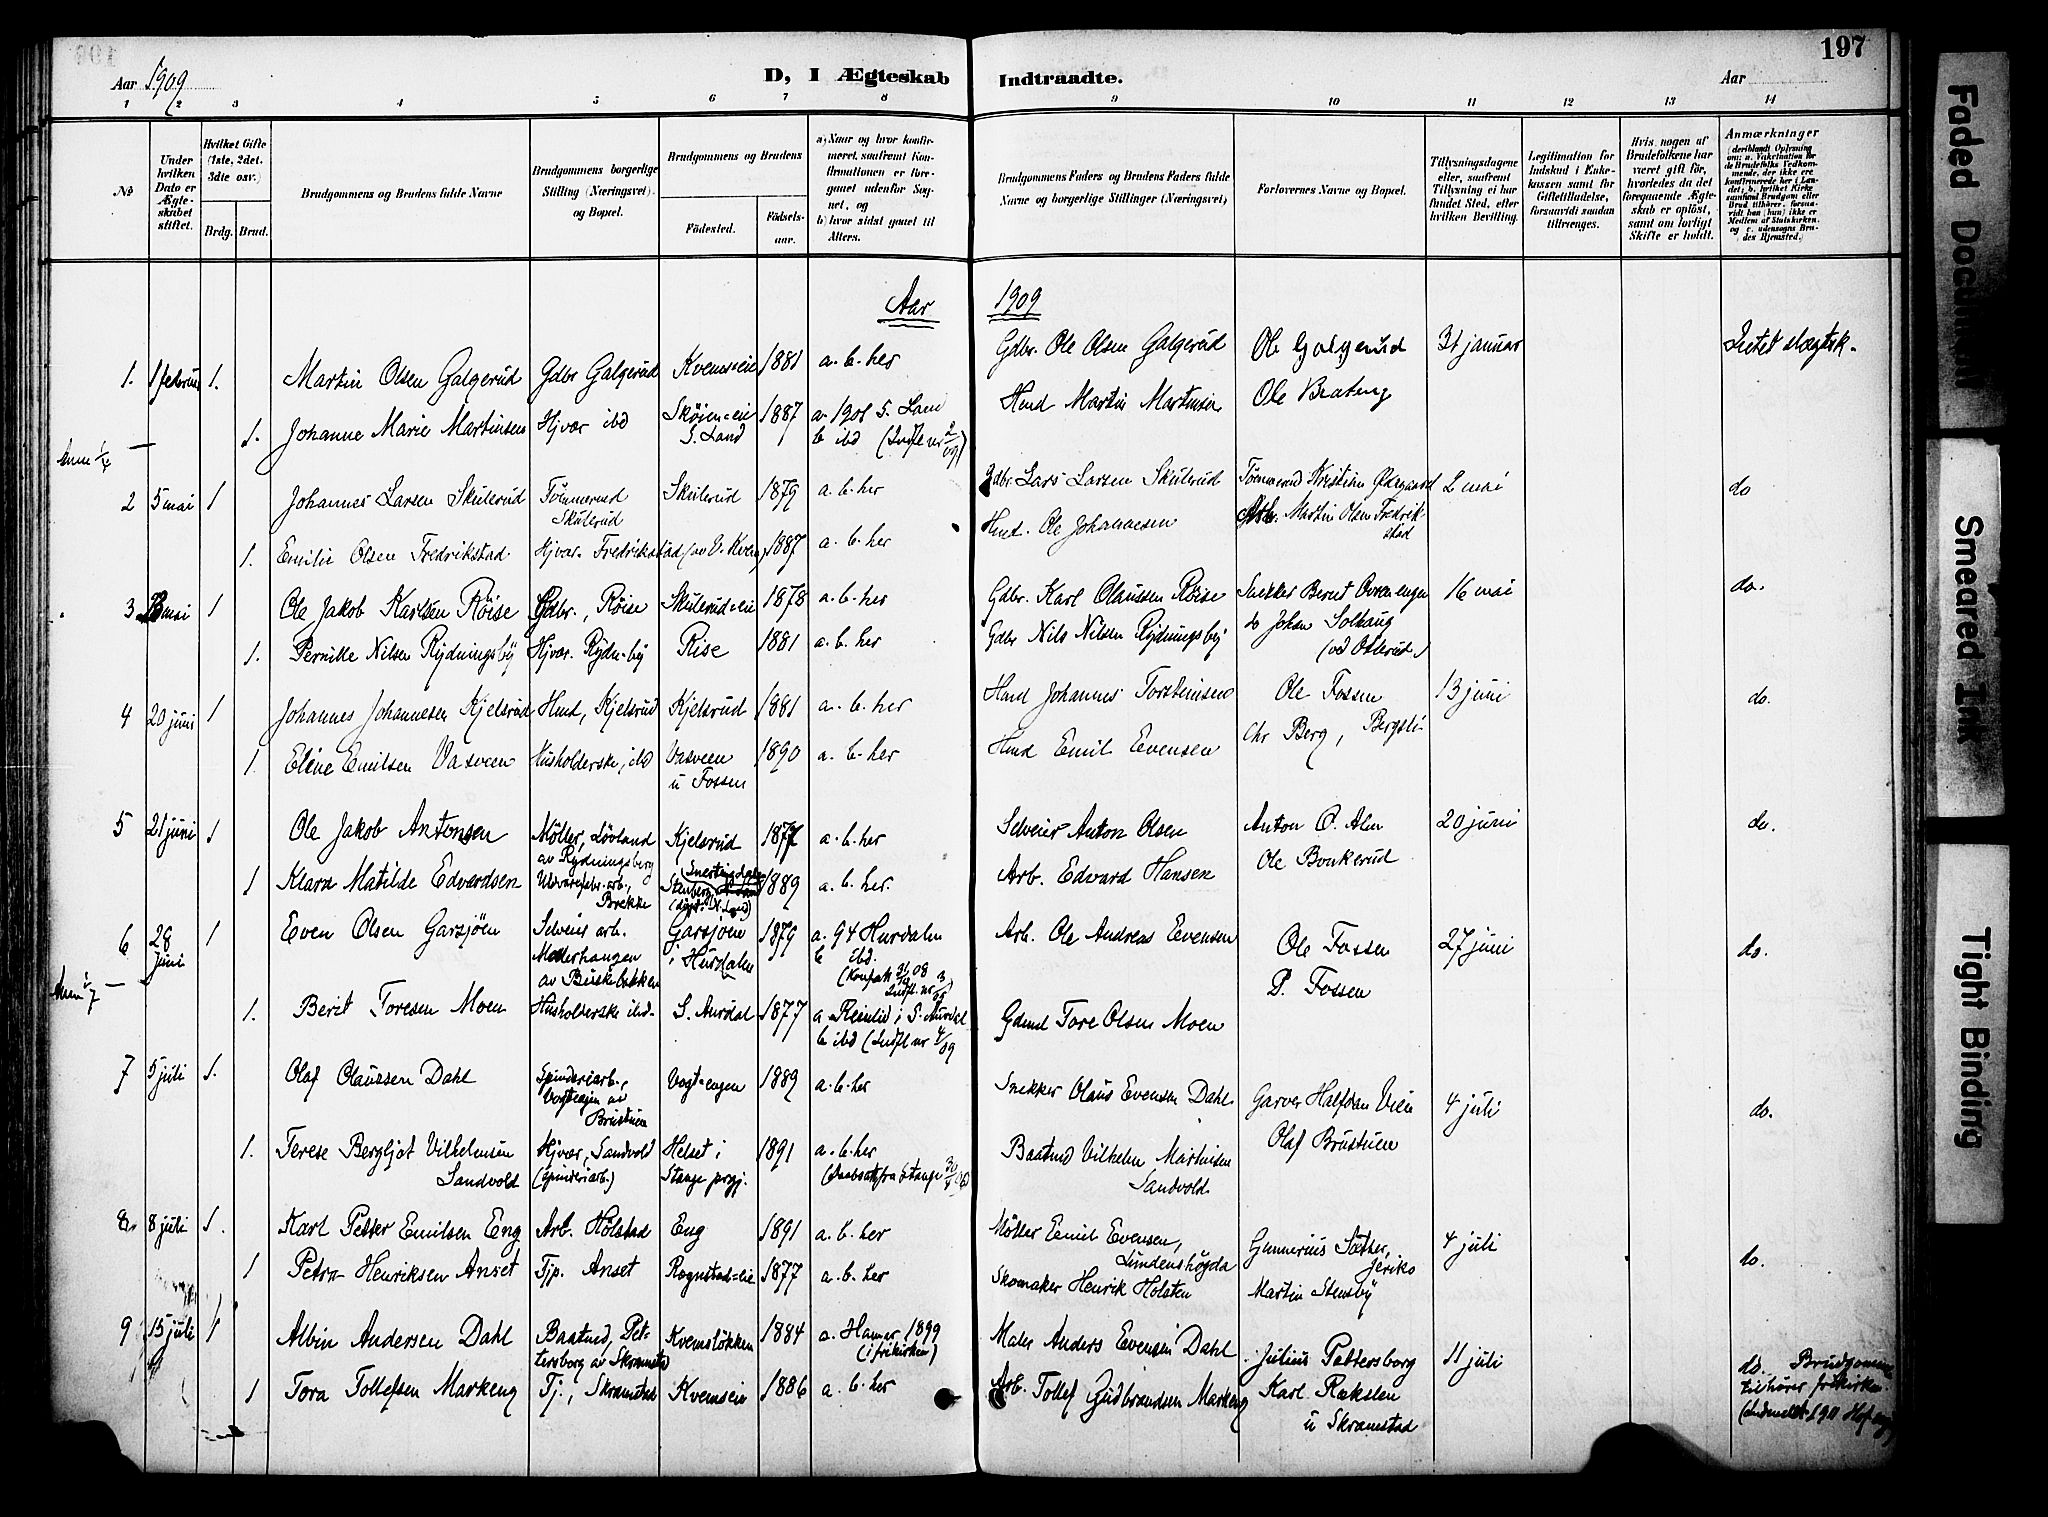 197
Aar 1909
D, I Ægteskab Indtraadte.
Aar
1 2 3 4 5 6 7 8 9 10 11 12 13 14
No
Under hvilken Dato er Ægteskabet stiftet.
Hvilket Gifte (1ste, 2det. 3die osv.)
Brdg. Brud.
Brudgommens og Brudens fulde Navne
Brudgommens borgerlige Stilling (Næringsvei) og Bopæl.
Brudgommens og Brudens
Fødested. Fødselsaar.
a) Naar og hvor konfirmeret, saafremt Konfirmationen er foregaaet udenfor Sognet, og
b) hvor sidst gaaet til Alters.
Brudgommens Faders og Brudens Faders fulde Navne og borgerlige Stillinger (Næringsvei)
Forlovernes Navne og Bopæl.
Tillysningsdagene eller, saafremt Tillysning ei har fundet Sted, efter hvilken Bevilling.
Legitimation for Indskud i Enkekassen samt for Giftetilladelse, forsaavidt saadan tiltrænges.
Hvis nogen af Brudefolkene har været gift før, hvorledes da det foregaaende Ægteskab er opløst, samt om lovligt Skifte er holdt.
Anmærkninger (deriblandt Oplysning om: a. Vakcination for de Brudefolks Vedkommende, der ikke ere konfirmerede her i Landet; b. hvilket Kirkesamfund Brudgom eller Brud tilhører, forsaavidt han (hun) ikke er Medlem af Statskirken, og c. udensogns Brudes Hjemsted.)
Aar 1909
1. 1 februar 1. Martin Olsen Galgerud Gdbr Galgerud Kvems=eie 1881 a. b. her Gdbr. Ole Olsen Galgerud Ole Galgerud 31 januar Intet slægtsk.
1. Johanne Marie Martinsen Hjvær ibd Skøien=eie S. Land 1887 a. 1901 S. Land b ibd Hmd Martin Martinsen Ole Brateng
2 5 mai 1 Johannes Larsen Skulerud Tømmermd Skulerud Skulerud 1879 a. b. her Gdbr. Lars Larsen Skulerud Tømmermd Kristian Ødegaard 2 mai do
1. Emilie Olsen Fredrikstad. Hjvær. Fredrikstad (av V. Kvem) 1887 a. b. her Hmd. Ole Johannesen Martin Olsen Fredrikstad
3 mai 1 Ole Jakob Karlsen Röise Gdbr., Röise Skulerud=eie 1878 a. b. her Gdbr. Karl Olaussen Röise Snekker Bernt 16 mai do.
1. Pernille Nilsen Rydningsby Hjvær. Rydn-by Rise 1881 a. b. her Gdbr Nils Nilsen Rydningsby do Johan Solhaug
4 20 juni 1 Johannes Johannesen Kjelsrud Hmd, Kjelsrud Kjelsrud 1881 a. b. her Hmd Johannes Torstensen Ole Fossen 13 juni do.
1. Eline Emilsen Vasveen Husholderske, ibd Vasveen u Fossen 1890 a. b. her Hmd Emil Evensen Chr Berg, Bergsli
5 21 juni 1 Ole Jakob Antonsen Möller, Lövland av Rydningsberg Kjelsrud 1877 a. b. her Selveier Anton Olsen Anton O. Alm 20 juni do.
1 Klara Matilde Edvardsen Brekke 1889 a. b. her. Arb. Edvard Hansen Ole
6 28 juni 1 Even Olsen Garsjöen Selveier arb. Garsjöen i Hurdalen 1879 a. 94 Hurdalen b ibd. Arb. Ole Andreas Evensen Ole Fossen 27 juni do.
P. Fossen
1. Berit Toresen Moen Husholderske ibd- S. Aurdal 1877 a Reinlid i S. Aurdal b ibd (Indfl nr 4/09 Gdmd Tore Olsen Moen
7 5 juli 1. Olaf Olaussen Dahl Spinderiarb., Vogtengen av Brustuen Vogt-engen 1889 a. b. her Snekker Olaus Evensen Dahl Garver Halfdan Vien 4 juli do.
1. Terese Bergljot Vilhelmsen Sandvold Hjvær, Sandvold (spinderiarb.) Helset i Stange prgj. 1891 a. b. her Baatmd Vilhelm Martinsen Sandvold Olaf Brustuen
8 8 juli 1. Karl Petter Emilsen Eng Arb. Holstad Eng 1891 a. b. her Möller Emil Evensen, Lundenshögda Gunnerius Sæther, Jeriko 4 juli do.
1 Petra Henriksen Anset Tjp. Anset Rognstad=eie 1877 a. b. her Skomaker Henrik Holsten Martin Stensby
9 15 juli 1 Albin Andersen Dahl Baatmd, Pettersborg av Skramstad Kvemsløkken 1884 a. Hamar 1899 (i frikirken) Maler Anders Evensen Dahl Julius Pettersborg 11 juli do. Brudgommen tilhører frikirken
1 Tora Tollefsen Markeng Tj, Skramstad Kvemseie 1886 a. b. her Arb. Tollef Gudbrandsen Markeng Karl Rækslen u Skramstad
Faded Document
Smeared Ink
Tight Binding